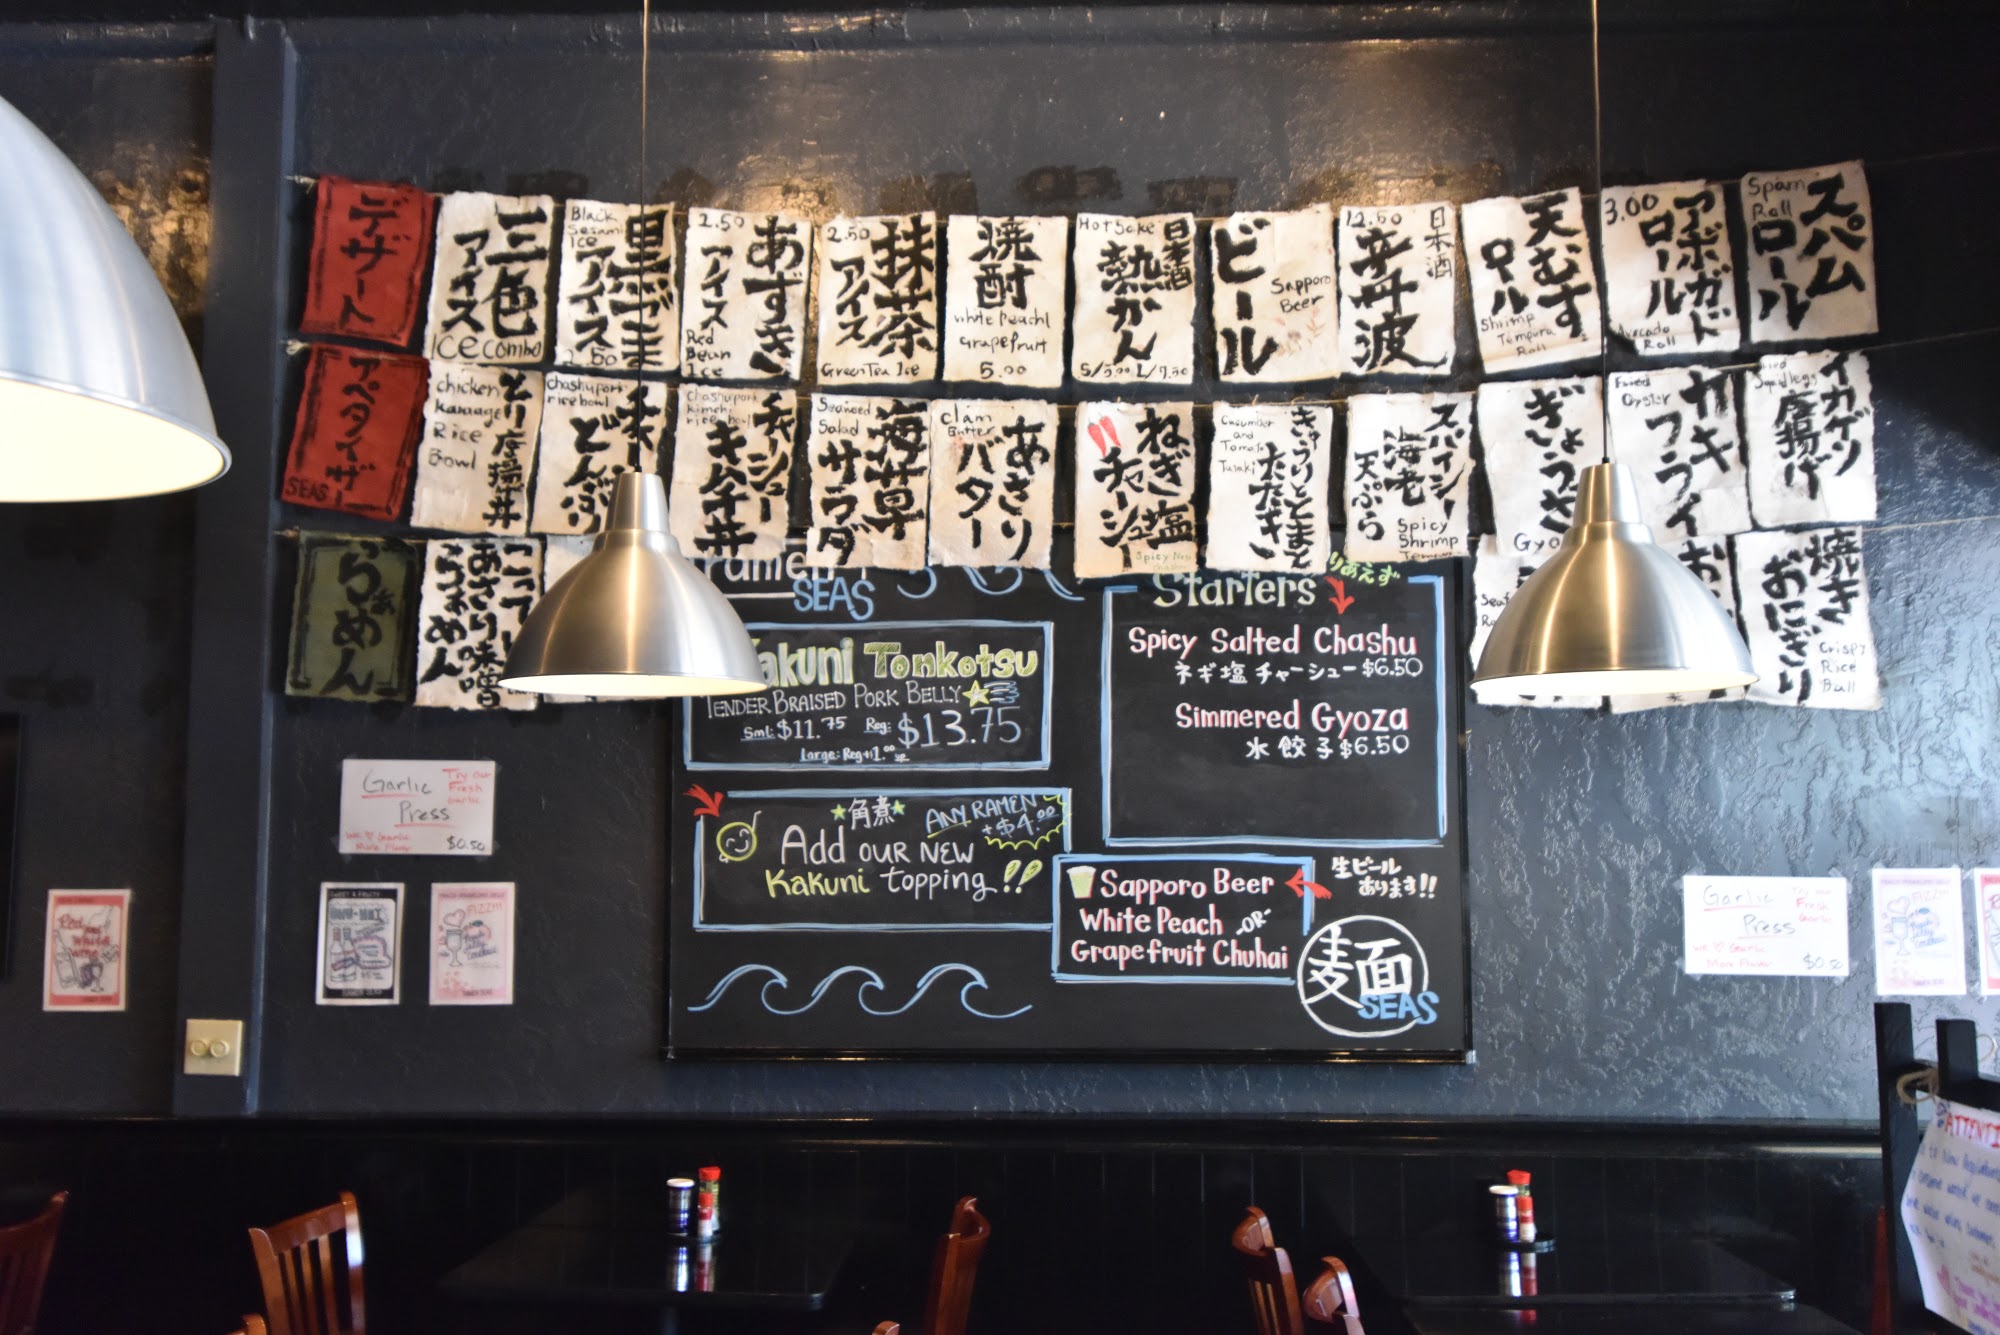 デザート
三色
アイス
Ice combo
Black
Sesami
Ice
黒ごま
アイス
2.50
2.50
あずき
アイス
Red
Bean
Ice
2.50
抹茶
アイス
Green Tea Ice
焼酎
White Peach/
Grapefruit
5.00
Hot Sake
日本酒
熱かん
S/5.00 L/7.50
ビール
Sapporo
Beer
12.50
日本酒
辛丹波
天むす
ロール
Shrimp
Tempura
Roll
3.00
アボガド
ロール
Avocado
Roll
Spam
Roll
スパム
ロール
アペタイザー
SEAS
chicken
Karaage
Rice
Bowl
とり唐揚丼
chashu pork
rice bowl
どんぶり
chashu pork
kimchi
rice bowl
チャーシュー
キムチ丼
Seaweed
Salad
海草
サラダ
Clam
Butter
あさり
バター
ねぎ塩
チャーシュー
Spicy Negi
Cucumber
and
Tomato
Tataki
きゅうりとトマト
たたき
スパイシー
海老
天ぷら
Spicy
Shrimp
ぎょうざ
Gyoza
Fried
Oyster
カキ
フライ
Squid legs
イカゲソ
唐揚げ
らぁめん
こって
あさり味噌
らぁめん
焼き
おにぎり
Crispy
Rice
Ball
ramen
SEAS
Kakuni Tonkotsu
Tender Braised Pork Belly
Sml: $11.75 Reg: $13.75
Large: Reg+1.00
角煮
Any Ramen
+$4.00
Add our new
Kakuni topping!!
Starters
りあえず
Spicy Salted Chashu
ネギ塩チャーシュー $6.50
Simmered Gyoza
水餃子 $6.50
Sapporo Beer
White Peach -or-
Grapefruit Chuhai
生ビール
あります!!
麺
SEAS
Garlic
Press
Try our
Fresh
Garlic
We ♡ Garlic
More Flavor
$0.50
Red
and
White
wine
FIZZ!!!
Garlic
Press
Try our
Fresh
Garlic
We ♡ Garlic
More Flavor
$0.50
FIZZ!!!
ATTENTI